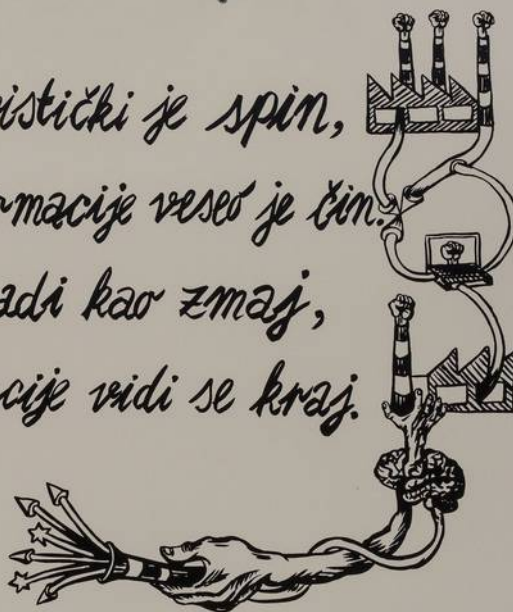 istički je spin,
macije veseo je čin.
adi kao zmaj,
cije vidi se kraj.